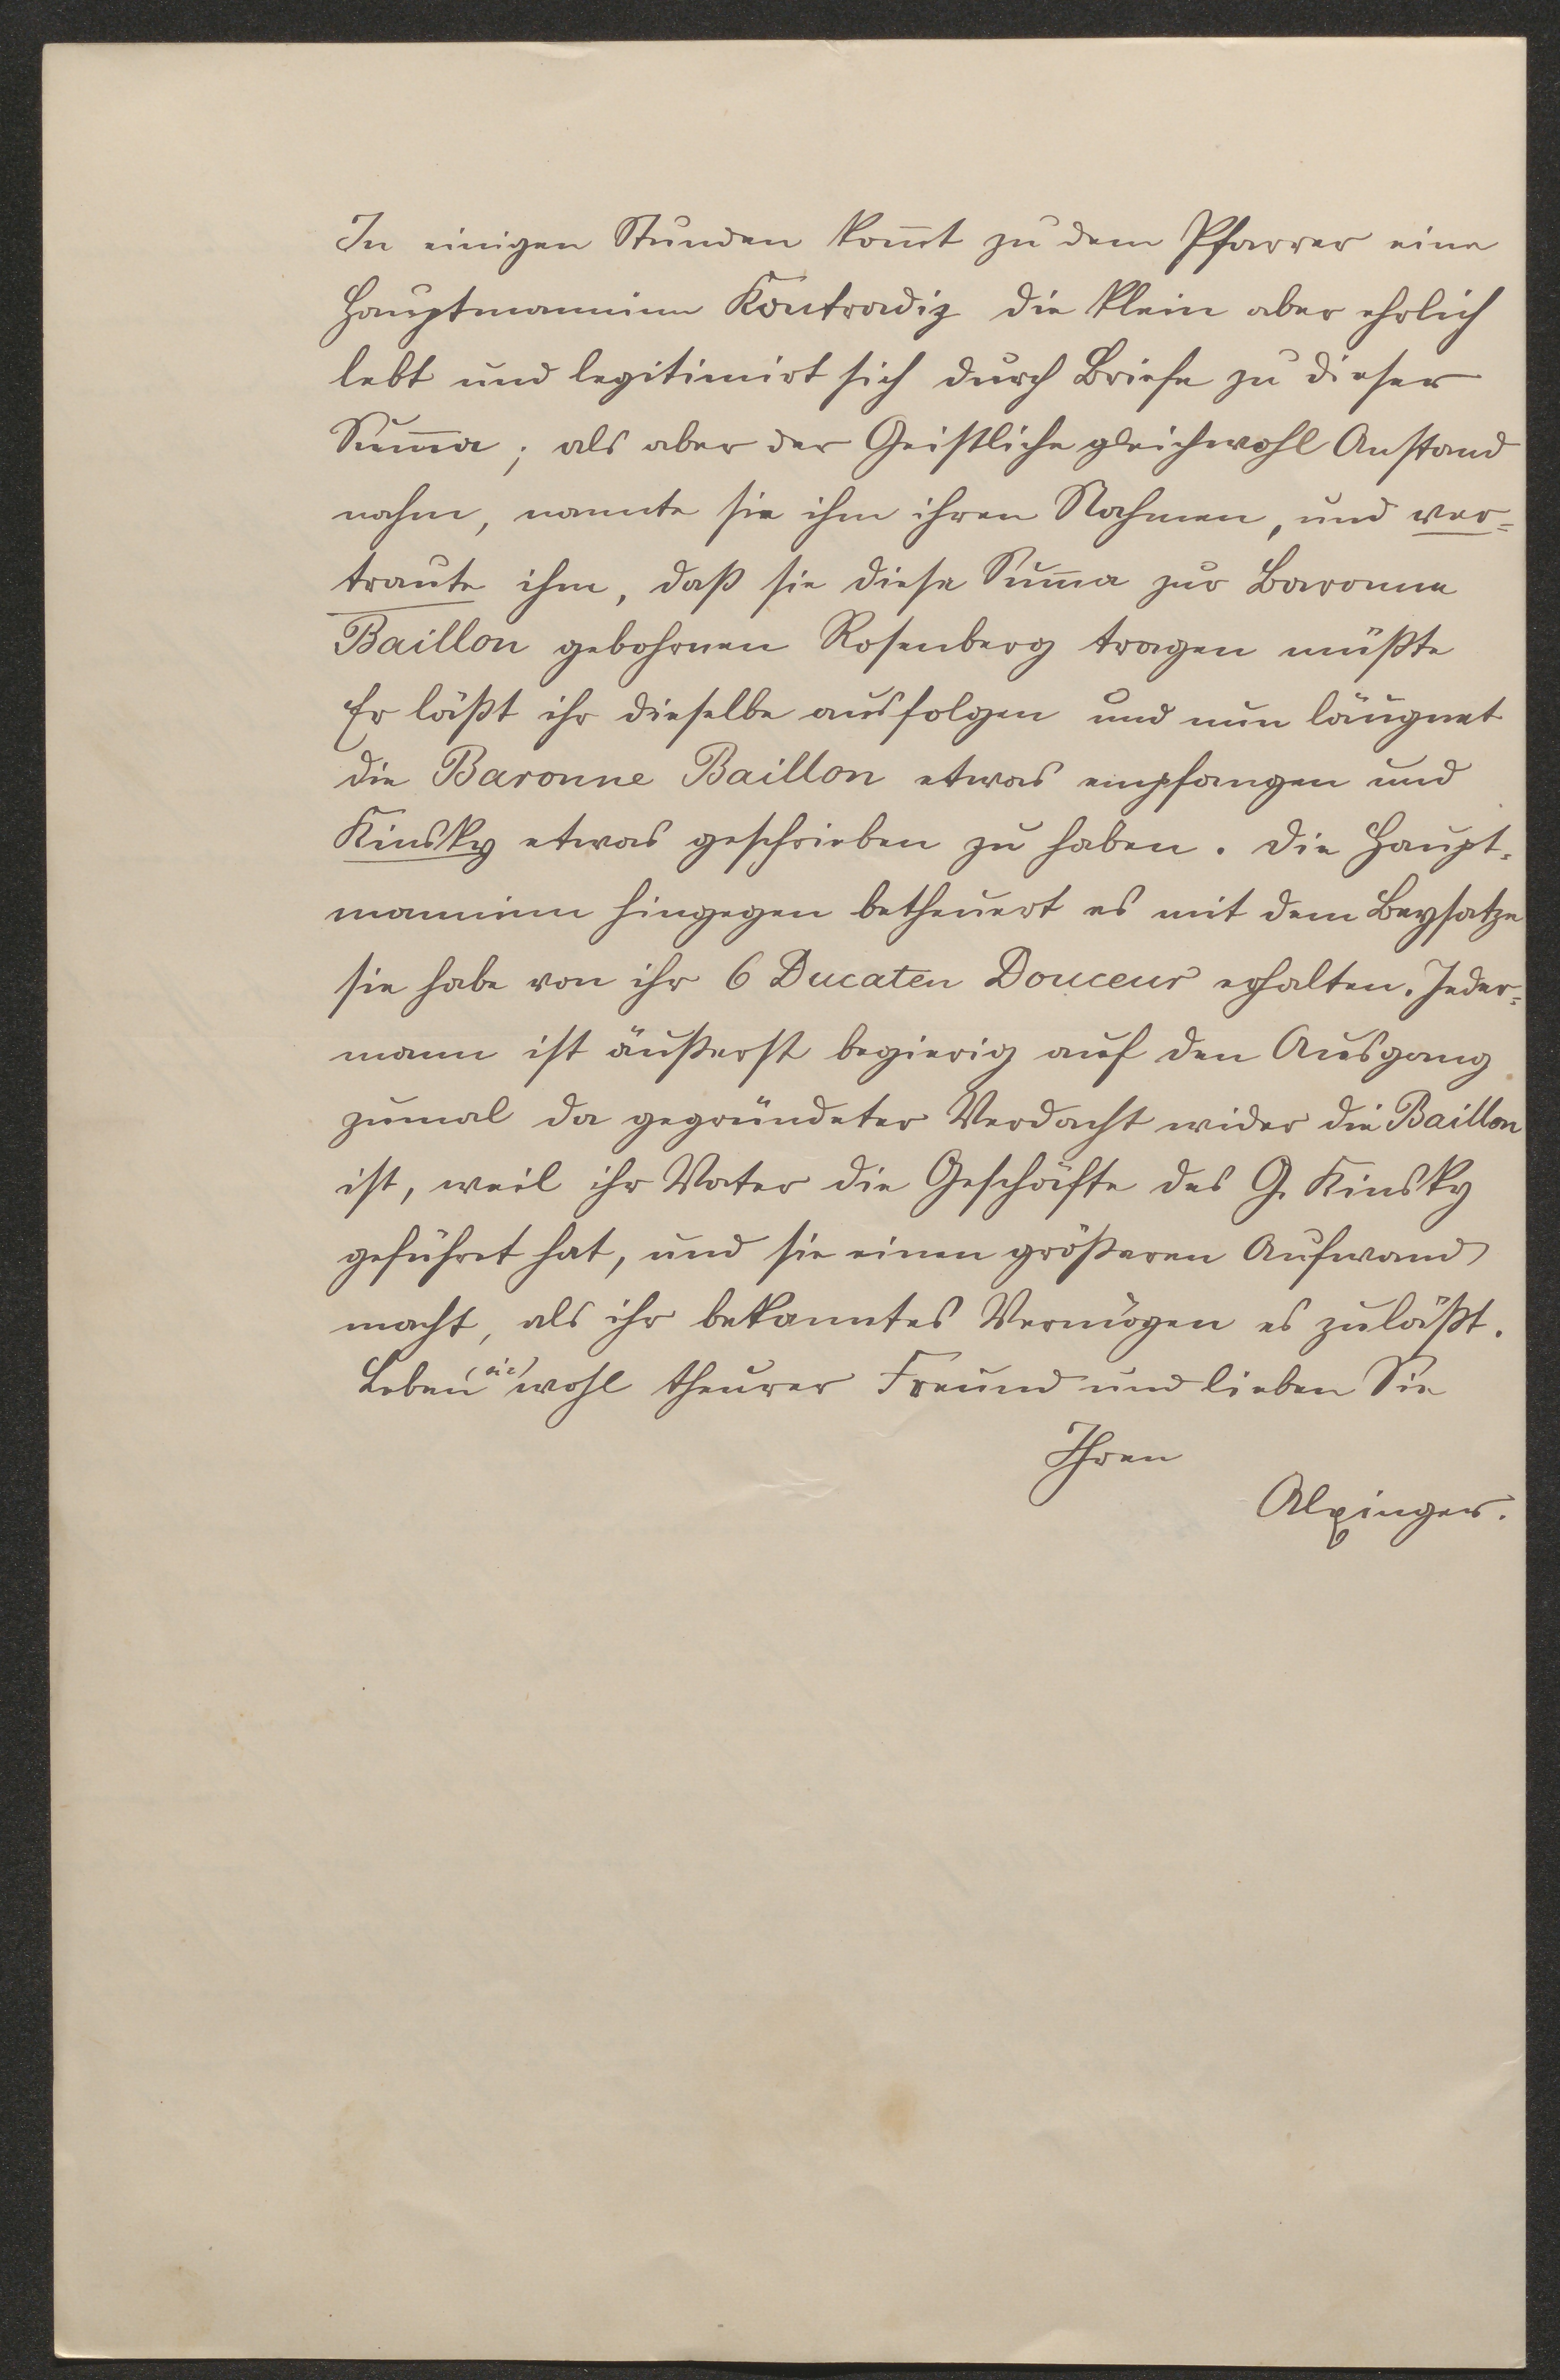 In einigen Stunden kom̄t zu dem Pfarrer eine
Hauptmanninn Kontradiz die klein aber ehrlich
lebt und legitimirt sich durch Briefe zu dieser
Sum̄a; als aber der Geistliche gleichwohl Anstand
nahm, nannte sie ihm ihren Nahmen, und ver=
traute ihm, daß sie diese Sum̄a zur Baronne
Baillon gebohrnen Rosenberg tragen müßte
Er läßt ihr dieselbe ausfolgen und nun läugnet
die Baronne Baillon etwas empfangen und
Kinsky etwas geschrieben zu haben. Die Haupt=
manninn hingegen betheuert es mit dem Beysatze
sie habe von ihr 6 Ducaten Douceur erhalten. Jeder=
mann ist äußerst begierig auf den Ausgang
zumal da gegründeter Verdacht wider die Baillon
ist, weil ihr Vater die Geschäfte des G. Kinsky
geführet hat, und sie einen größeren Aufwand
macht, als ihr bekanntes Vermögen es zuläßt.
Leben (sic) wohl theurer Freund und lieben Sie
Ihren
Alxinger.